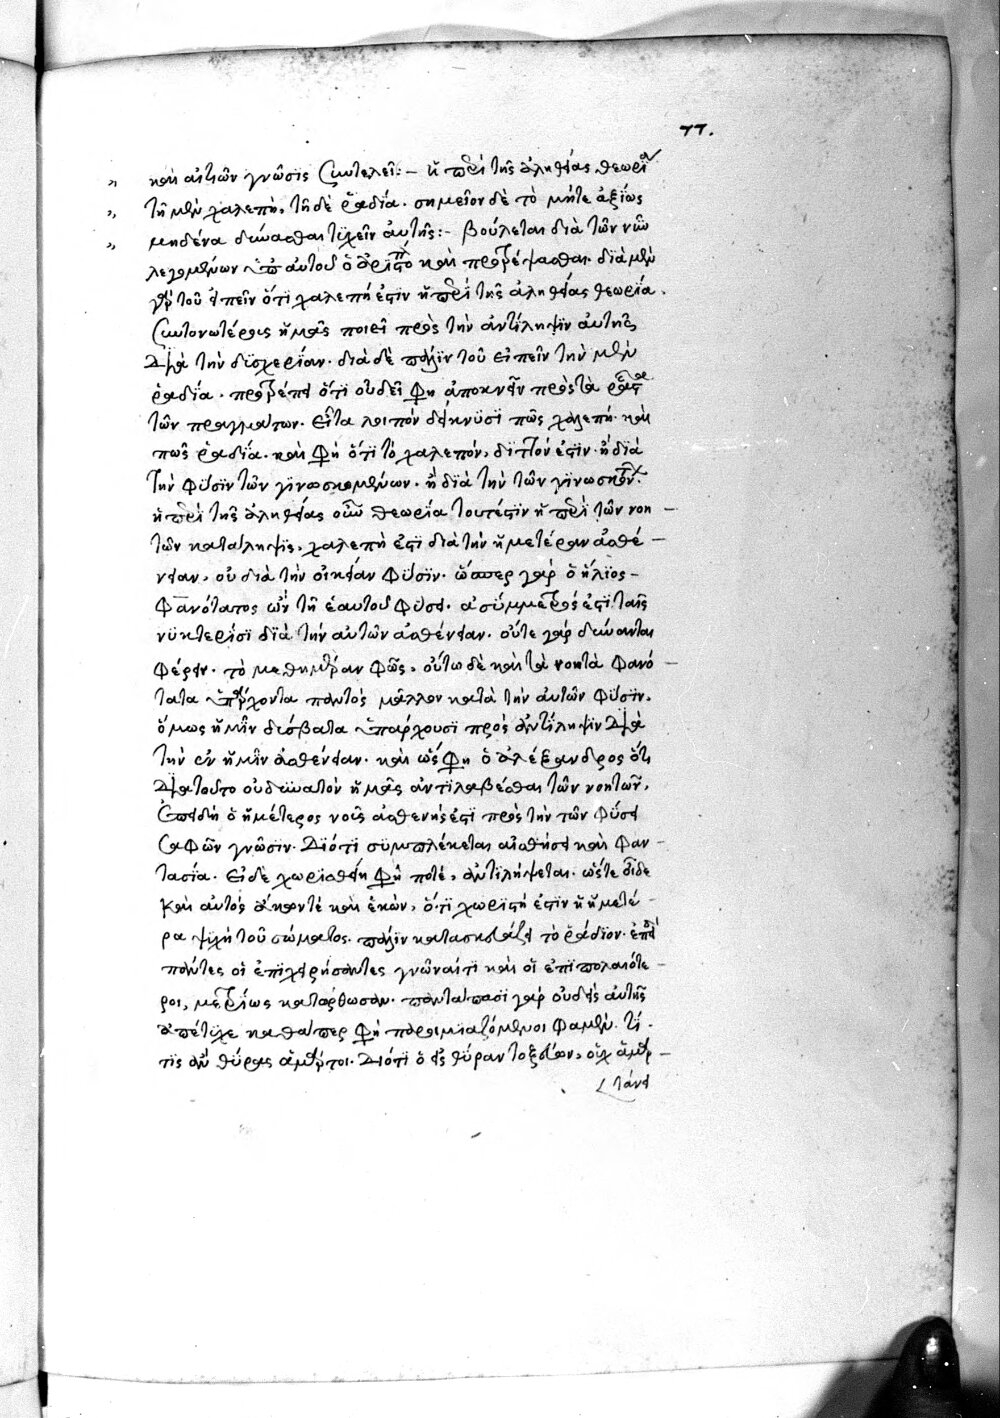 77.
„ καὶ αἰτιῶν γνῶσις συντελεῖ:– ἡ περὶ τῆς ἀληθείας θεωρία
„ τῇ μὲν χαλεπή, τῇ δὲ ῥαδία. σημεῖον δὲ τὸ μήτε ἀξίως
„ μηδένα δύνασθαι τυχεῖν αὐτῆς:– βούλεται διὰ τῶν νῦν
λεγομένων ὑπ' αὐτοῦ ὁ ἀριστο καὶ προτρέψασθαι. διὰ μὲν
γὰρ τοῦ εἰπεῖν ὅτι χαλεπή ἐστιν ἡ περὶ τῆς ἀληθείας θεωρία.
συντονωτέρους ἡμᾶς ποιεῖ πρὸς τὴν ἀντίληψιν αὐτῆς
διὰ τὴν δυσχερίαν. διὰ δὲ πάλιν τοῦ εἰπεῖν τὴν μὲν
ῥαδία. προτρέπει ὅτι οὐ δεῖ φη ἀποκνεῖν πρὸς τὰ ῥᾷστα
τῶν πραγμάτων. εἶτα λοιπόν δείκνυσι πῶς χαλεπή. καὶ
πῶς ῥαδία. καὶ φη ὅτι τὸ χαλεπόν, διττόν ἐστιν. ἢ διὰ
τὴν φύσιν τῶν γινωσκομένων. ἢ διὰ τὴν τῶν γινωσκόντων.
ἡ περὶ τῆς ἀληθείας οὖν θεωρία τουτέστιν ἡ περὶ τῶν νοη –
τῶν κατάληψις, χαλεπή ἐστι διὰ τὴν ἡμετέραν ἀσθέ –
νειαν, οὐ διὰ τὴν οἰκείαν φύσιν. ὥσπερ γὰρ ὁ ἥλιος –
φανότατος ὢν τῇ ἑαυτοῦ φύσει. ἀσύμμετρός ἐστι ταῖς
νυκτερίσι διὰ τὴν αὐτῶν ἀσθένειαν. οὔτε γὰρ δύνανται
φέρειν. τὸ μεθημερινὰν φῶς, οὕτω δὲ καὶ τὰ νοητὰ φανό –
τατα ὑπάρχοντα παντὸς μᾶλλον κατὰ τὴν αὐτῶν φύσιν,
ὅμως ἡμῖν δύσβατα ὑπάρχουσι πρὸς ἀντίληψιν διὰ
τὴν ἐν ἡμῖν ἀσθένειαν. καὶ ὥς φη ὁ ἀλέξανδρος ὅτι
διὰ τοῦτο οὐ δυνατὸν ἡμᾶς ἀντιλαβέσθαι τῶν νοητῶν,
ἐπειδὴ ὁ ἡμέτερος νοῦς ἀσθενής ἐστι πρὸς τὴν τῶν φύσει
σαφῶν γνῶσιν. διότι συμπλέκεται αἰσθήσει καὶ φαν –
τασία. εἰ δὲ χωρισθείη φη ποτέ, ἀντιλήψεται. ὥστε οἶδε
καὶ αὐτὸς ἄκοντέ καὶ ἑκών, ὅτι χωριστή ἐστιν ἡ ἡμετέ –
ρα ψυχὴ τοῦ σώματος. πάλιν κατασκευάζει τὸ ῥάδιον. ἐπειδὴ
πάντες οἱ ἐπιχειρήσαντες γνῶναί τι καὶ οἱ ἐπιπολαιότε –
ροι, μετρίως κατώρθωσαν. παντάπασι γὰρ οὐδεὶς αὐτῆς
ἀπέτυχε καθάπερ φη παροιμιαζόμενοι φαμέν. τί.
τις ἂν θύρας ἁμάρτοι. διότι ὁ εἰς θύραν τοξεύων, οὐχ ἁμαρ –
τάνει